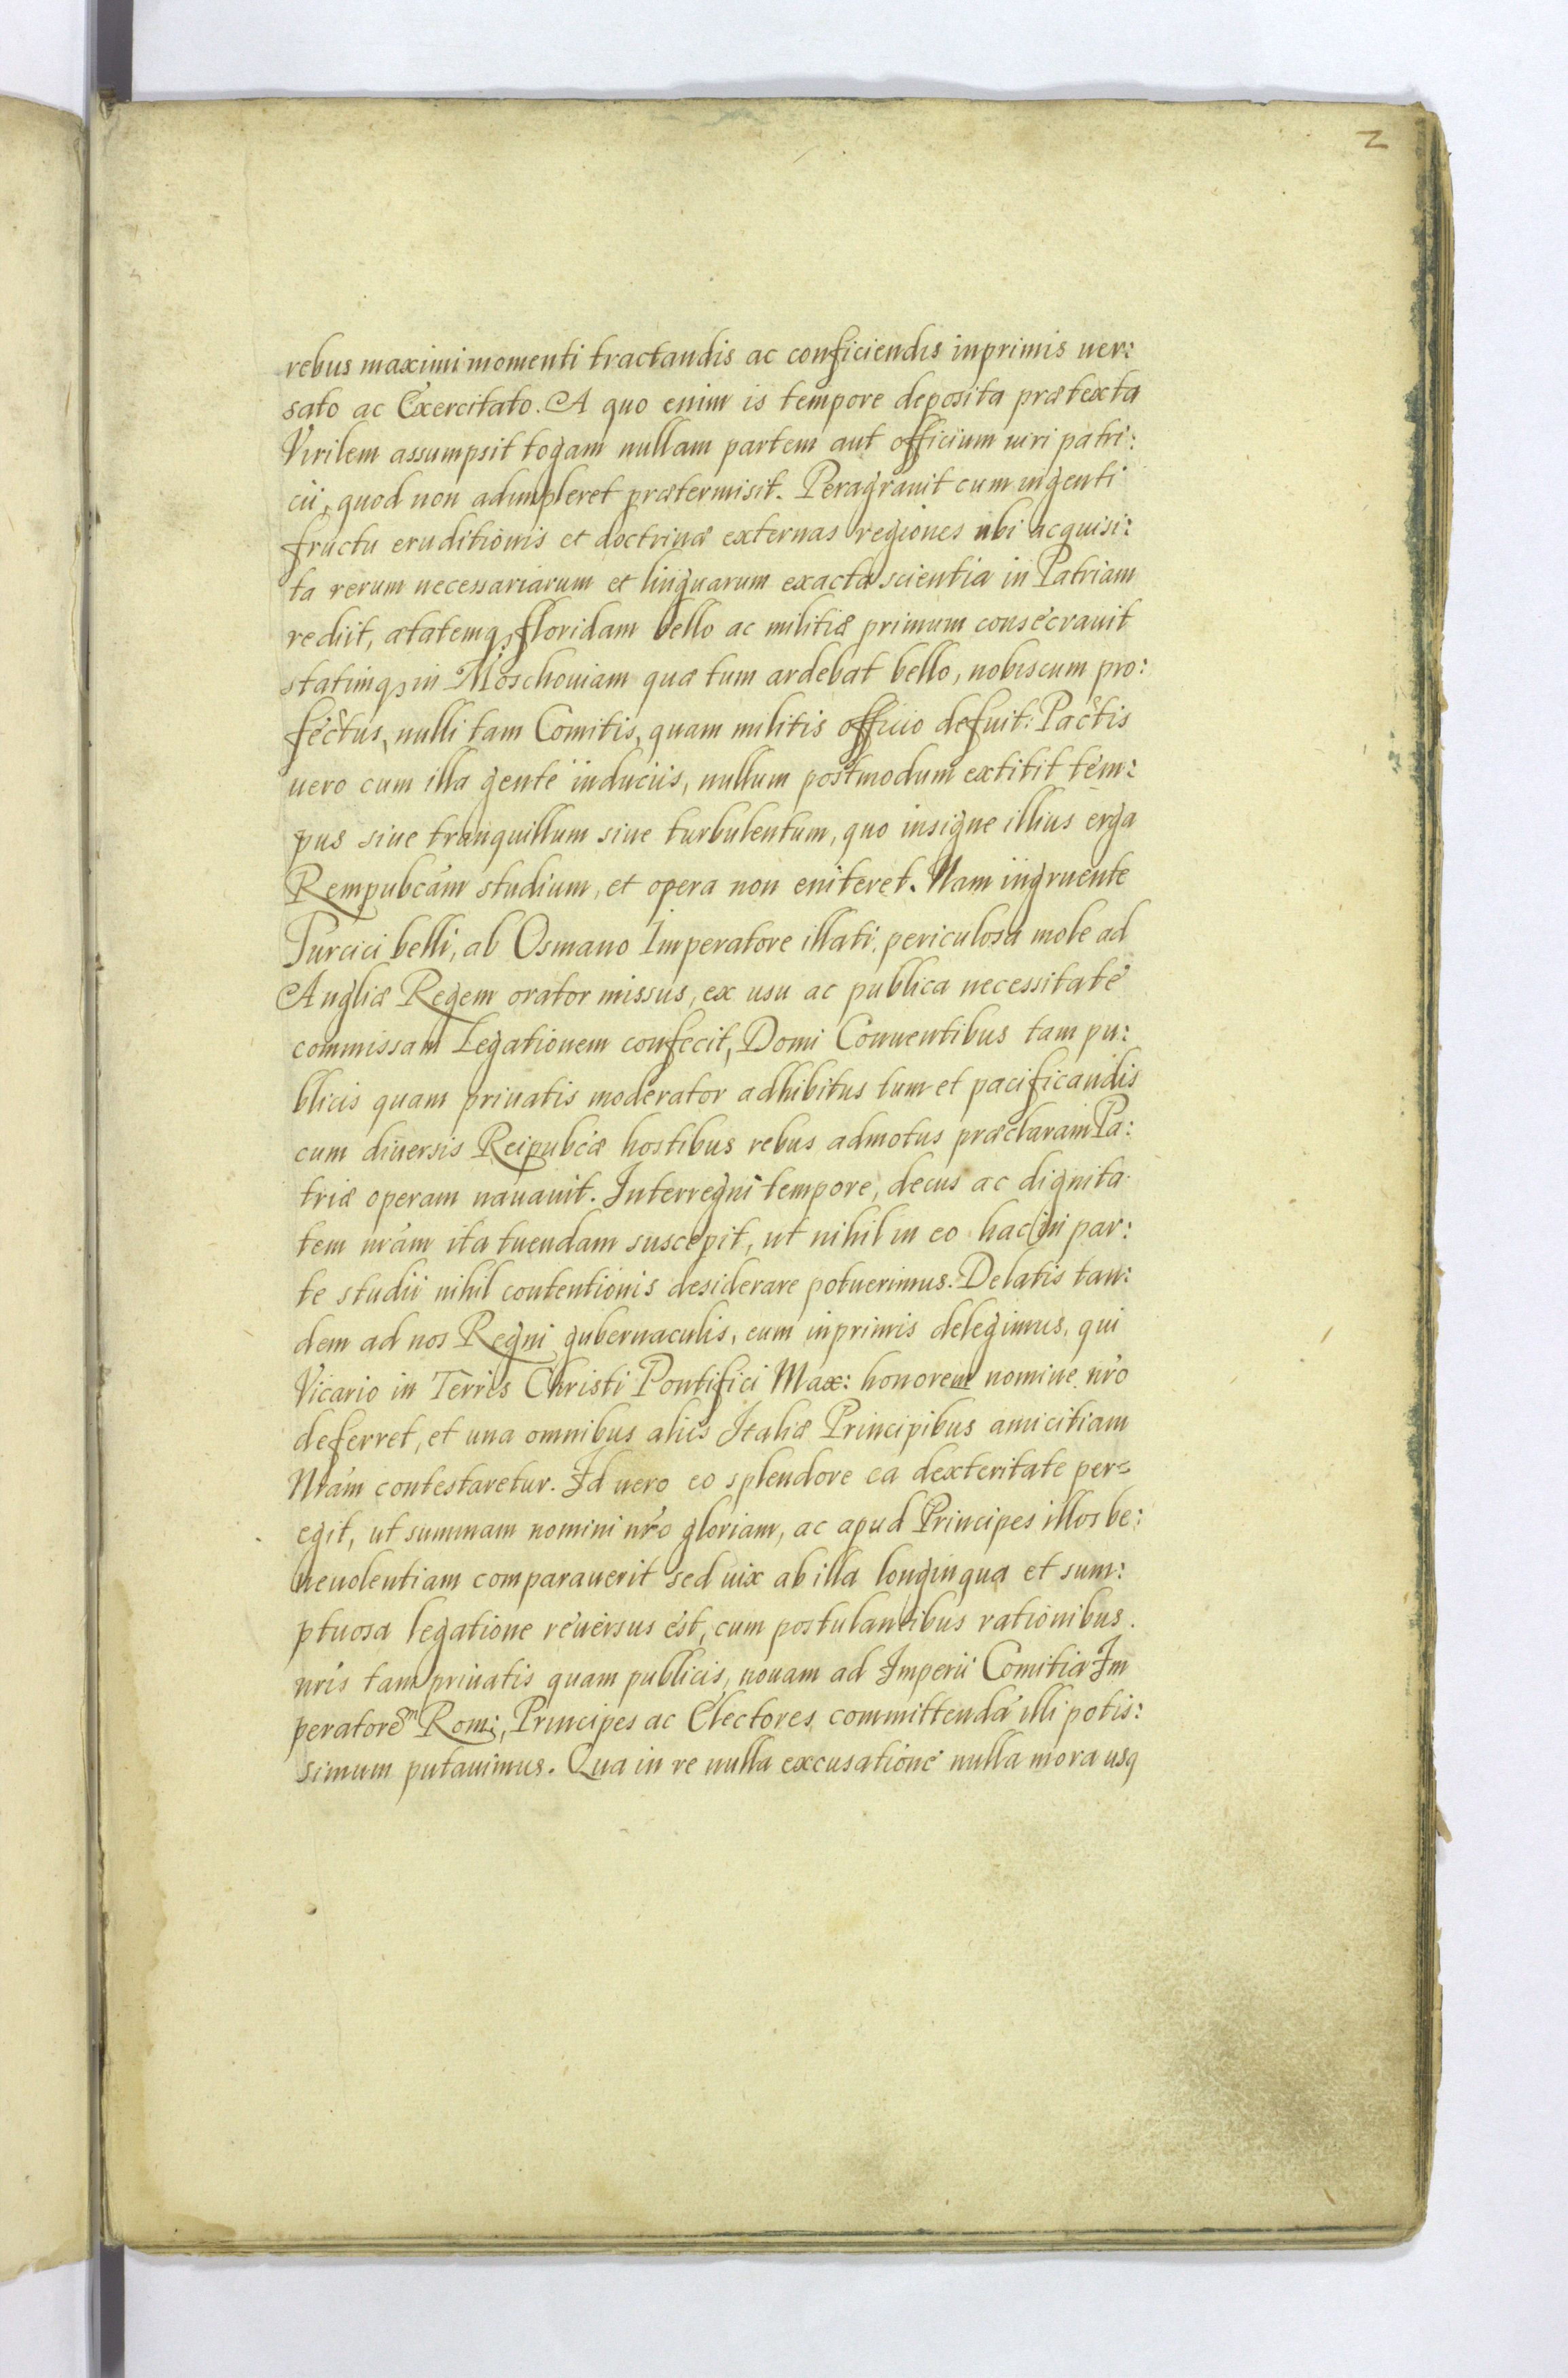 2
rebus maximi momenti tractandis ac conficiendis inprimis uer:
sato ac Exercitato. A quo enim is tempore deposita prætexta
Virilem assumpsit togam nullam partem aut officium uiri patri:
cii, quod non adimpleret prætermisit. Peragrauit cum ingenti
fructu eruditionis et doctrinæ externas regiones ubi acquisi:
ta rerum necessariarum et linguarum exacta scientia in Patriam
rediit, ætatemq, floridam bello ac militiæ primum consecrauit
statimq, in Moschouiam quæ tum ardebat bello, nobiscum pro:
fectus, nulli tam Comitis, quam militis officio defuit: Pactis
uero cum illa gente induciis, nullum postmodum extitit tem:
pus siue tranquillum siue turbulentum, quo insigne illius erga
Rempubcam studium, et opera non eniteret. Nam ingruente
Turcici belli, ab Osmano Imperatore illati, periculosa mole ad
Angliæ Regem orator missus, ex usu ac publica necessitate
commissam Legationem confecit, Domi Conuentibus tam pu:
blicis quam priuatis moderator adhibitus tum et pacificandis
cum diuersis Reipubcæ hostibus rebus admotus præclaram Pa:
triæ operam nauauit. Interregni tempore, decus ac dignita
tem nram ita tuendam suscepit, ut nihil in eo hac in par:
te studii nihil contentionis desiderare potuerimus. Delatis tan:
dem ad nos Regni gubernaculis, eum inprimis delegimus, qui
Vicario in Terris Christi Pontifici Max: honorem nomine nro
deferret, et una omnibus aliis Italiæ Principibus amicitiam
Nram contestaretur. Id uero eo splendore ea dexteritate per=
egit, ut summam nomini nro gloriam, ac apud Principes illos be:
neuolentiam comparauerit sed uix ab illa longinqua et sum:
ptuosa legatione reuersus est, cum postulantibus rationibus
nris tam priuatis quam publicis, nouam ad Imperii Comitia Im
peratorem Rom:, Principes ac Electores committenda illi potis:
simum putauimus. Qua in re nulla excusatione nulla mora usq